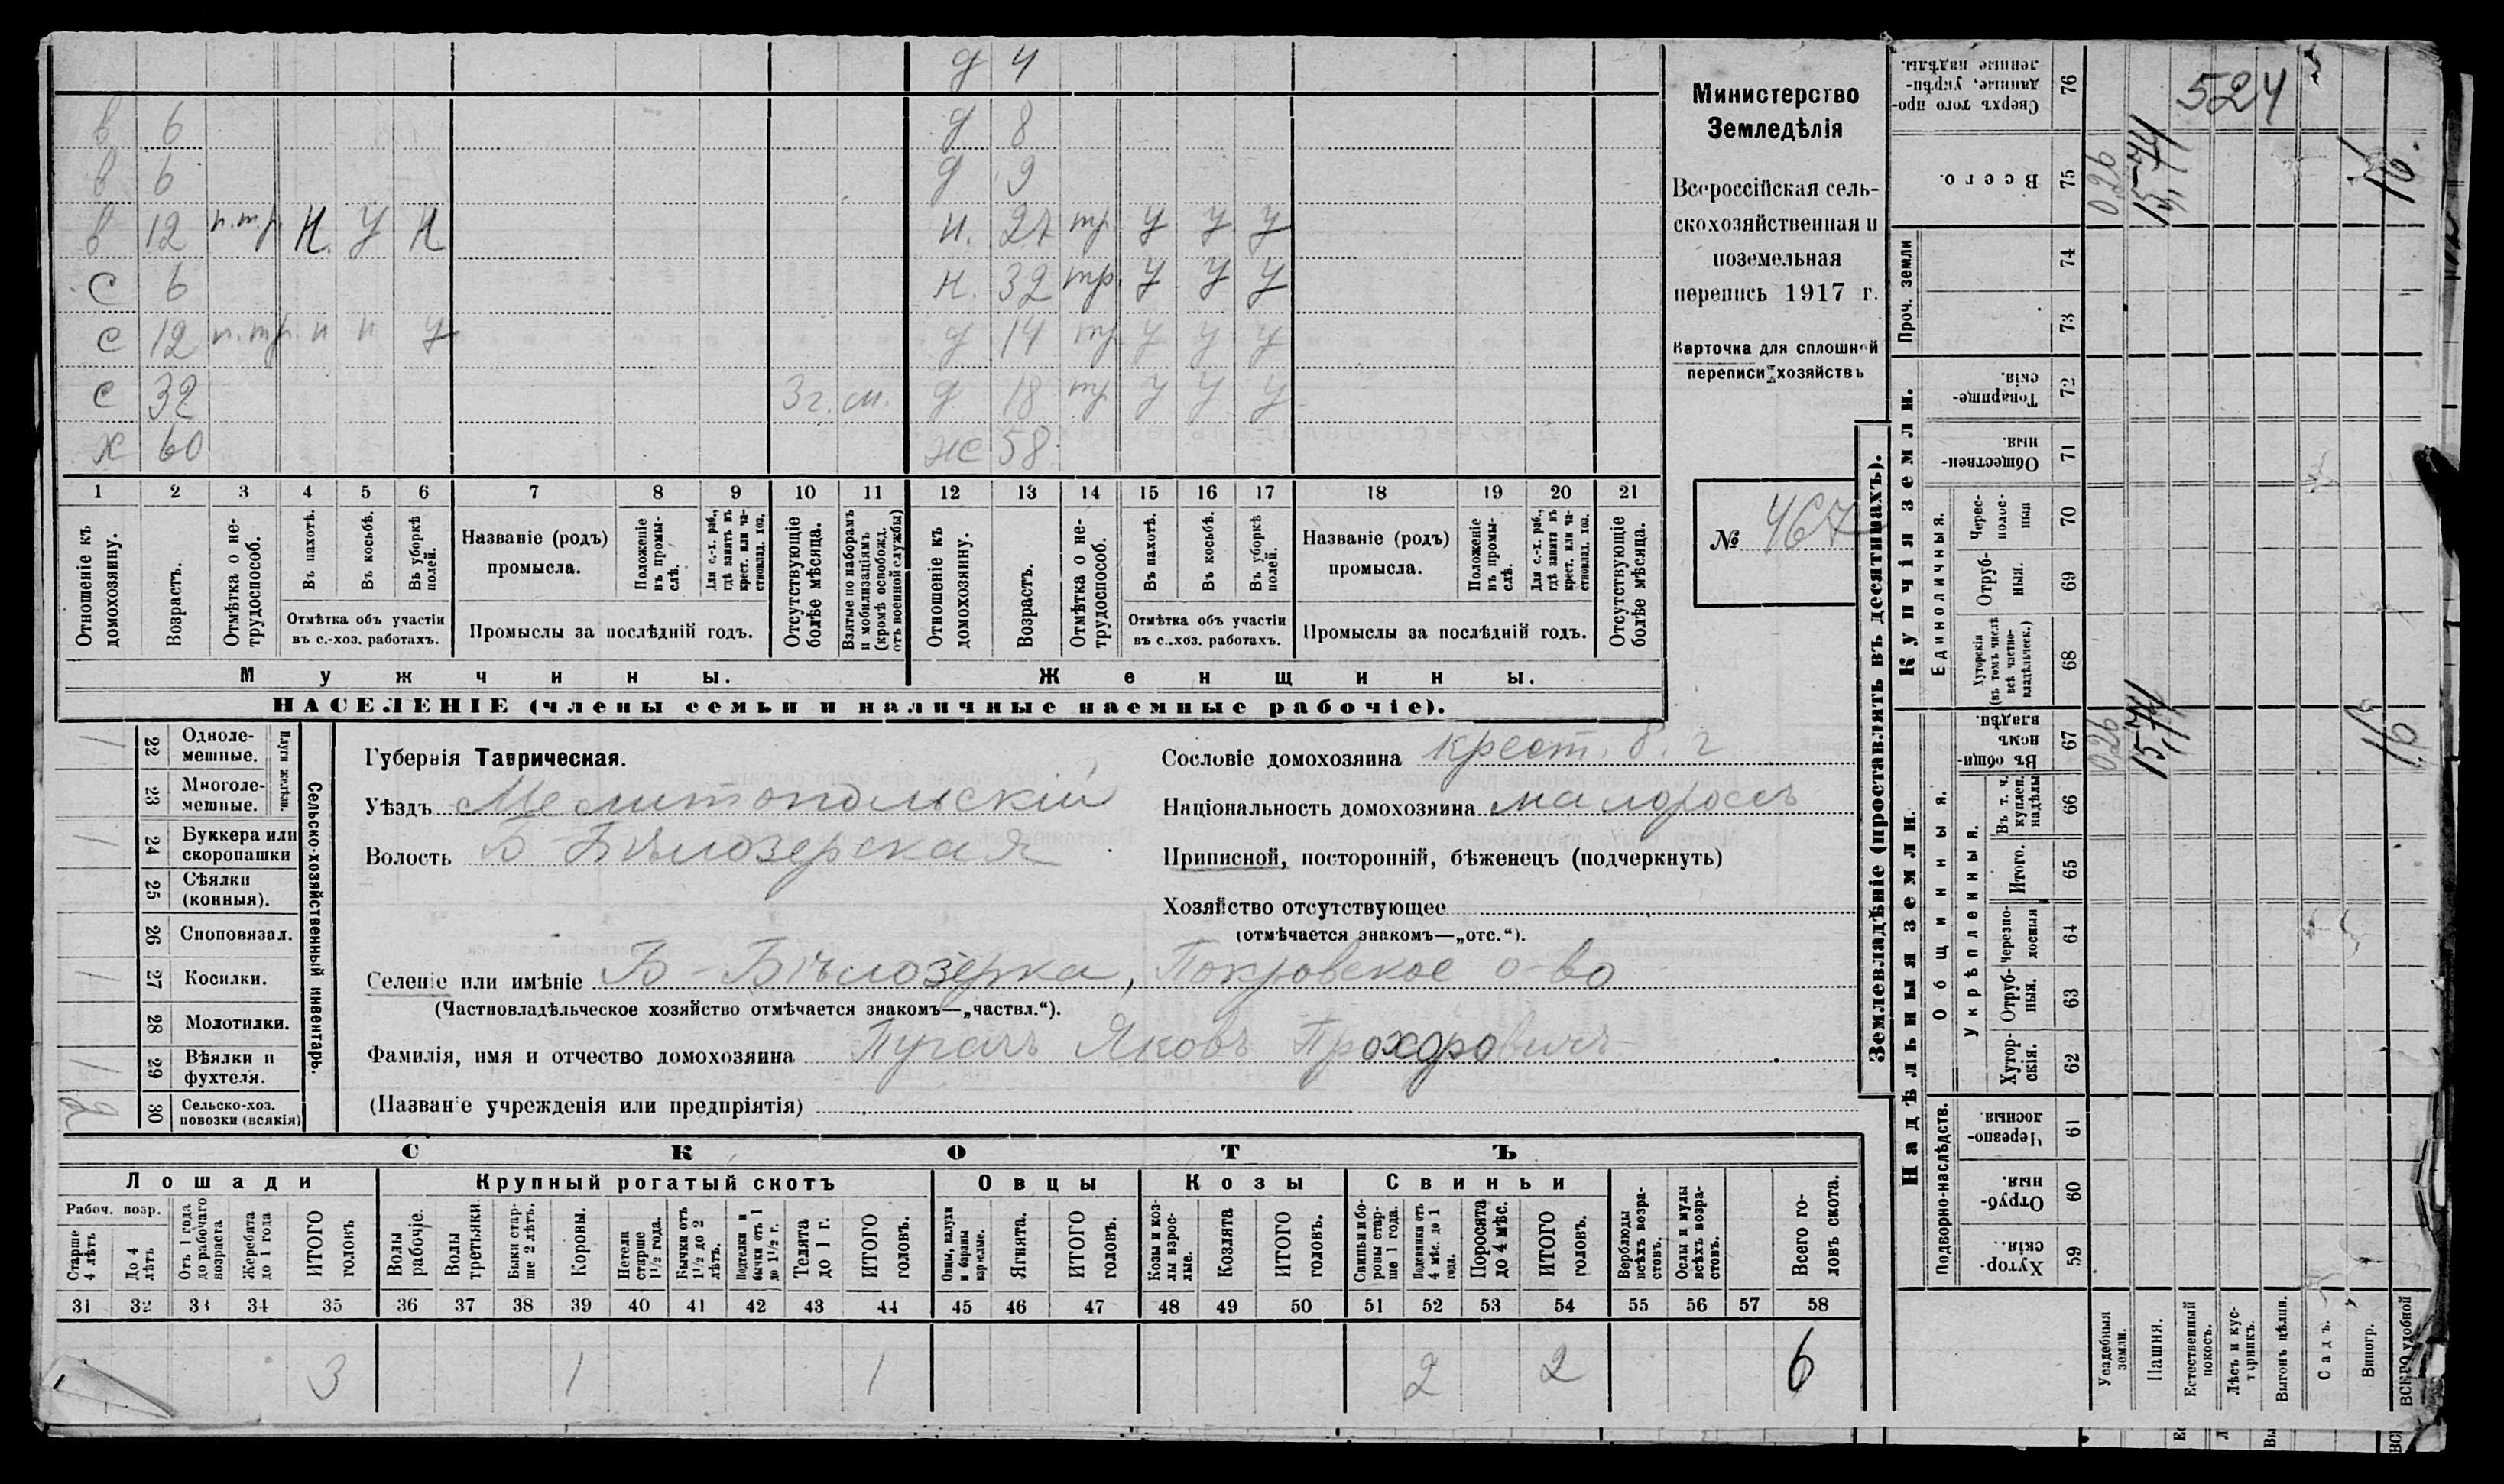 д 4
в 6 д 8
в 6 д 9
в 12 п.т.р. Н. У Н н. 27 тр У У У
с 6 н. 32 тр. У У У
с 12 п.тр. н н У д 14 тр У У У
с 32 3 г. м. д 18 тр У У У
х 60 ж 58
1 2 3 4 5 6 7 8 9 10 11 12 13 14 15 16 17 18 19 20 21
Отношеніе къ домохозяину.
Возрастъ.
Отмѣтка о не-трудоспособ.
Въ пахотѣ.
Въ косьбѣ.
Въ уборкѣ полей.
Отмѣтка объ участіи
въ с.-хоз. работахъ.
Названіе (родъ)
промысла.
Положеніе въ промы-слѣ.
Для с.-х. раб., гдѣ занятъ въ крест. или ча-стновлад. хоз.
Промыслы за послѣдній годъ.
Отсутствующіе болѣе мѣсяца.
Взятые по наборамъ и мобилизаціямъ (кромѣ освобожд. отъ военной службы)
Отношеніе къ домохозяину.
Возрастъ.
Отмѣтка о не-трудоспособ.
Въ пахотѣ.
Въ косьбѣ.
Въ уборкѣ полей.
Отмѣтка объ участіи
въ с.-хоз. работахъ.
Названіе (родъ)
промысла.
Положеніе въ промы-слѣ.
Для с.-х. раб., гдѣ занята въ крест. или ча-стновлад. хоз.
Промыслы за послѣдній годъ.
Отсутствующіе болѣе мѣсяца.
Мужчины. Женщины.
НАСЕЛЕНІЕ (члены семьи и наличные наемные рабочіе).
Министерство
Земледѣлія
Всероссійская сель-
скохозяйственная и
поземельная
перепись 1917 г.
Карточка для сплошной
переписи хозяйствъ
№ 467
22 Одноле-мешные. 1
23 Многоле-мешные.
Плуги желѣзн.
24 Буккера или скоропашки 1
25 Сѣялки (конныя).
26 Сноповязал.
27 Косилки. 1
28 Молотилки.
29 Вѣялки и фухтеля. 1
30 Сельско-хоз. повозки (всякія) 2
Сельско-хозяйственный инвентарь.
Губернія Таврическая.
Уѣздъ Мелитопольскій
Волость Б-Бѣлозерская
Сословіе домохозяина крест. б. г
Національность домохозяина малороссъ
Приписной, посторонній, бѣженецъ (подчеркнуть)
Хозяйство отсутствующее
(отмѣчается знакомъ—„отс.“).
Селеніе или имѣніе Б-Бѣлозерка, Покровское о-во
(Частновладѣльческое хозяйство отмѣчается знакомъ—„частвл.“).
Фамилія, имя и отчество домохозяина Пугачъ Яковъ Прохоровичъ
(Названіе учрежденія или предпріятія)
СКОТЪ
Лошади Крупный рогатый скотъ Овцы Козы Свиньи
Рабоч. возр.
Старше 4 лѣтъ
До 4 лѣтъ
Отъ 1 года до рабочаго возраста
Жеребята до 1 года
ИТОГО головъ
Волы рабочіе.
Волы третьяки
Быки стар-ше 2 лѣтъ.
Коровы.
Нетели старше 1½ года.
Бычки отъ 1½ до 2 лѣтъ.
Подтелки и бычки отъ 1 до 1½ г.
Телята до 1 г.
ИТОГО головъ.
Овцы, валухи и бараны взрослые.
Ягнята.
ИТОГО головъ.
Козы и коз-лы взрос-лые.
Козлята
ИТОГО головъ.
Свиньи и бо-ровы стар-ше 1 года.
Подсвинки отъ 4 мѣс. до 1 года.
Поросята до 4 мѣс.
ИТОГО головъ.
Верблюды всѣхъ возра-стовъ.
Ослы и мулы всѣхъ возра-стовъ.
Всего го-ловъ скота.
31 32 33 34 35 36 37 38 39 40 41 42 43 44 45 46 47 48 49 50 51 52 53 54 55 56 57 58
3 1 1 2 2 6
Землевладѣніе (проставлять въ десятинахъ).
524
Сверхъ того про-данные, укрѣп-ленные надѣлы. 76
Всего. 75 0,26 15,74 16.
Проч. земли 74
73
Купчія земли.
Товарище-скія. 72
Обществен-ныя. 71
Единоличныя.
Черес-полос-ныя 70
Отруб-ныя. 69
Хуторскія (въ томъ числѣ всѣ частно-владѣльческ.) 68
Надѣльныя земли.
Общинныя.
Въ общи-номъ владѣн. 67 0,26 15,74 16
Укрѣпленныя.
Въ т. ч. куплен. надѣлы 66
Итого. 65
черезпо-лосныя 64
Отруб-ныя. 63
Хутор-скія. 62
Подворно-наслѣдств.
Черезпо-лосныя 61
Отруб-ныя. 60
Хутор-скія. 59
Усадебныя земли.
Пашня.
Естественный покосъ.
Лѣсъ и кус-тарникъ.
Выгонъ цѣлин.
Садъ.
Виногр.
ВСЕГО удобной